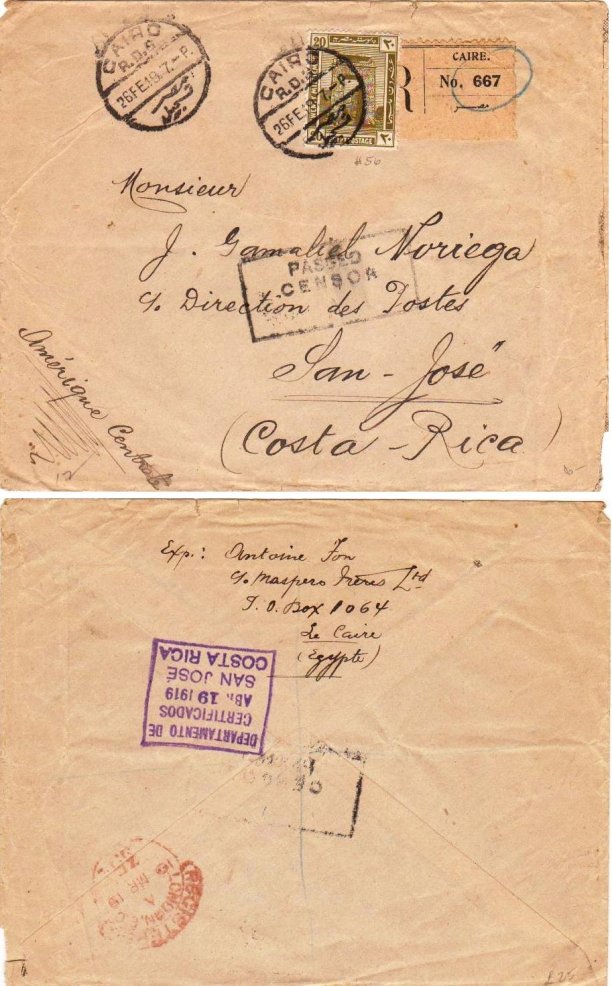 CAIRO
R.D.S.
26 FE 19. 7-P.
CAIRO
R.D.S.
26 FE 19 7-P.
20 ٢٠
20 POSTAGE ٢٠
R
CAIRE.
No. 667
مصر
#56
Monsieur
J. Gamaliel Noriega
PASSED
CENSOR
c/o Direction des Postes
San-José
(Costa-Rica)
Amérique Centrale
Exp.: Antoine Fon
c/o Maspero Frères Ltd
P.O. Box 1064
Le Caire
(Egypte)
DEPARTAMENTO DE
CERTIFICADOS
ABR. 19 1919
SAN JOSÉ
COSTA RICA
REGISTERED
LONDON
MR 19